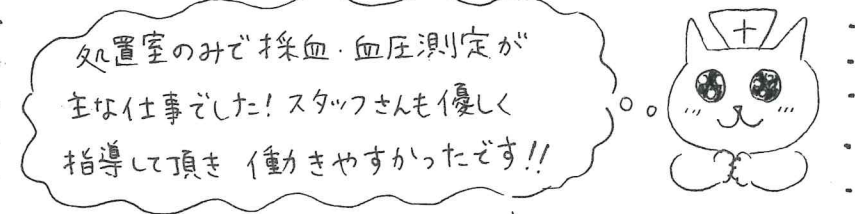 処置室のみで採血・血圧測定が
主な仕事でした!スタッフさんも優しく
指導して頂き 働きやすかったです!!